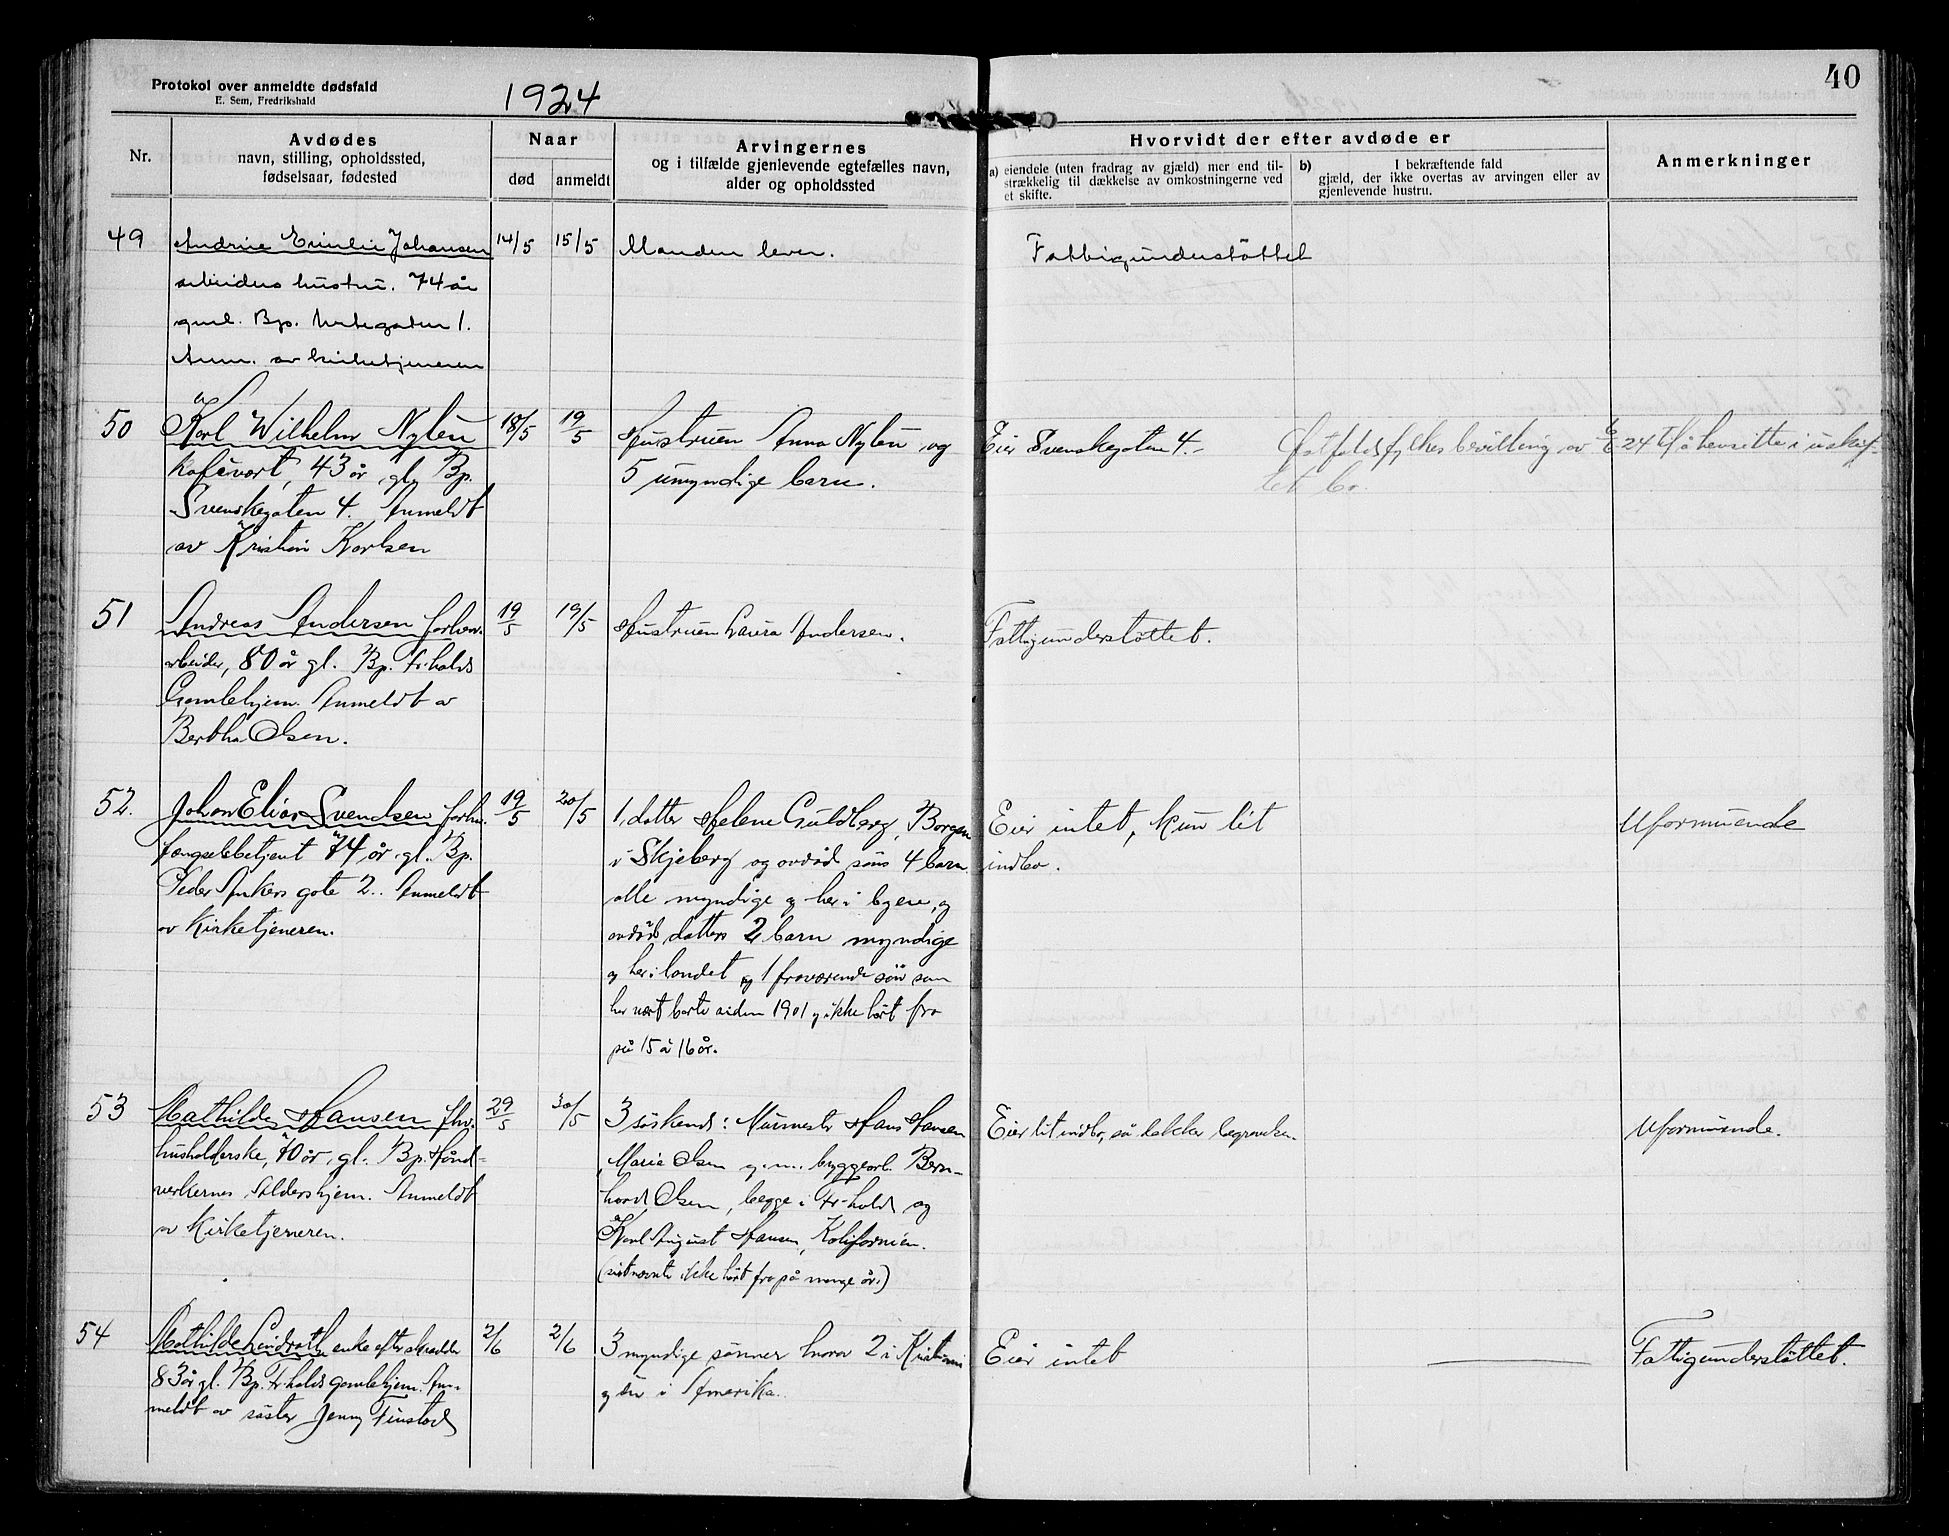 Protokol over anmeldte dødsfald
E. Sem, Fredrikshald
1924
40
Nr.
Avdødes
navn, stilling, opholdssted,
fødselsaar, fødested
Naar
død
anmeldt
Arvingernes
og i tilfælde gjenlevende egtefælles navn,
alder og opholdssted
Hvorvidt der efter avdøde er
a) eiendele (uten fradrag av gjæld) mer end til-
strækkelig til dækkelse av omkostningerne ved
et skifte.
b) I bekræftende fald
gjæld, der ikke overtas av arvingen eller av
gjenlevende hustru.
Anmerkninger
49
Andrine Emilie Johansen
arbeiders hustru. 74 år
gml. Bp. 1.
Anm. av kirketjeneren
14/5
15/5
Manden lever.
Fattigunderstøttet
50
Karl Wilhelm Nylén
Kafévært, 43 år gl. Bp.
Svenskegaten 4. Anmeldt
av Kristian Karlsen
18/5
19/5
Hustruen Anna Nylén og
5 umyndige barn.
Eier Svenskegaten 4.-
Østfold fylkes bevilling av 24 til å hensitte i uskif-
tet bo.
51
Andreas Andersen forhv.
arbeider, 80 år gl. Bp. Fr.halds
Gamlehjem. Anmeldt av
Bertha Olsen.
19/5
19/5
Hustruen Laura Andersen.
Fattigunderstøttet.
52.
Johan Elias Svendsen forhv.
fængselsbetjent 74 år gl. Bp.
Peder Ankers gate 2.. Anmeldt
av Kirketjeneren.
19/5
20/5
1 datter Helene Guldberg, Borgen
i Skjeberg og avdød søns 4 barn
alle myndige og her i byen, og
avdød datters 2 barn myndige
og her i landet og 1 fraværende søn som
har vært borte siden 1901 og ikke hørt fra
på 15 à 16 år.
Eier intet, kun lit
indbo.
Uformuende
53
Mathilde Hansen fhv.
husholderske, 70 år gl. Bp. Hånd-
verkernes Aldershjem. Anmeldt
av Kirketjeneren.
29/5
30/5
3 søskende: Murmester Hans Hansen
Marie Olsen g.m. byggearb. Bern-
hard Olsen, begge i Fr-hald og
Karl August Hansen, Kalifornien.
(sistnevnte ikke hørt fra på mange år.)
Eier lit indbo, så dækker begravelsen.
Uformuende.
54
Mathilde Lindroth, enke efter skrædder
83 år gl. Bp. Fr.halds gamlehjem. An-
meldt av søster Jenny Finstad
2/6
2/6
3 myndige sønner hvorav 2 i Kristiania
og en i Amerika.
Eier intet
Fattigunderstøttet.